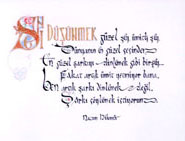 Seni DÜŞÜNMEK güzel şey ümitli şey
Dünyanın En güzel sesinden
En güzel şarkıyı dinlemek gibi birşey
Fakat artık ümit yetmiyor bana
ben artık şarkı dinlemek değil
Şarkı söylemek istiyorum
Nazım Hikmet